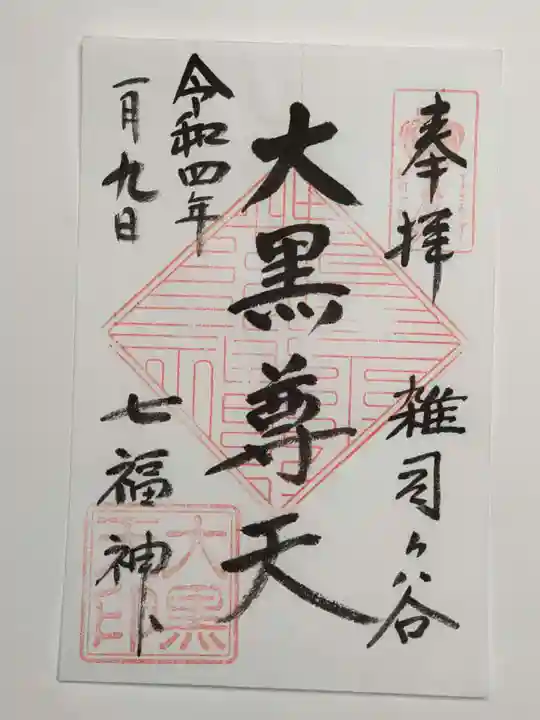 奉拝
雑司ヶ谷
大黒尊天
令和四年
一月九日
七福神
大黒
天印